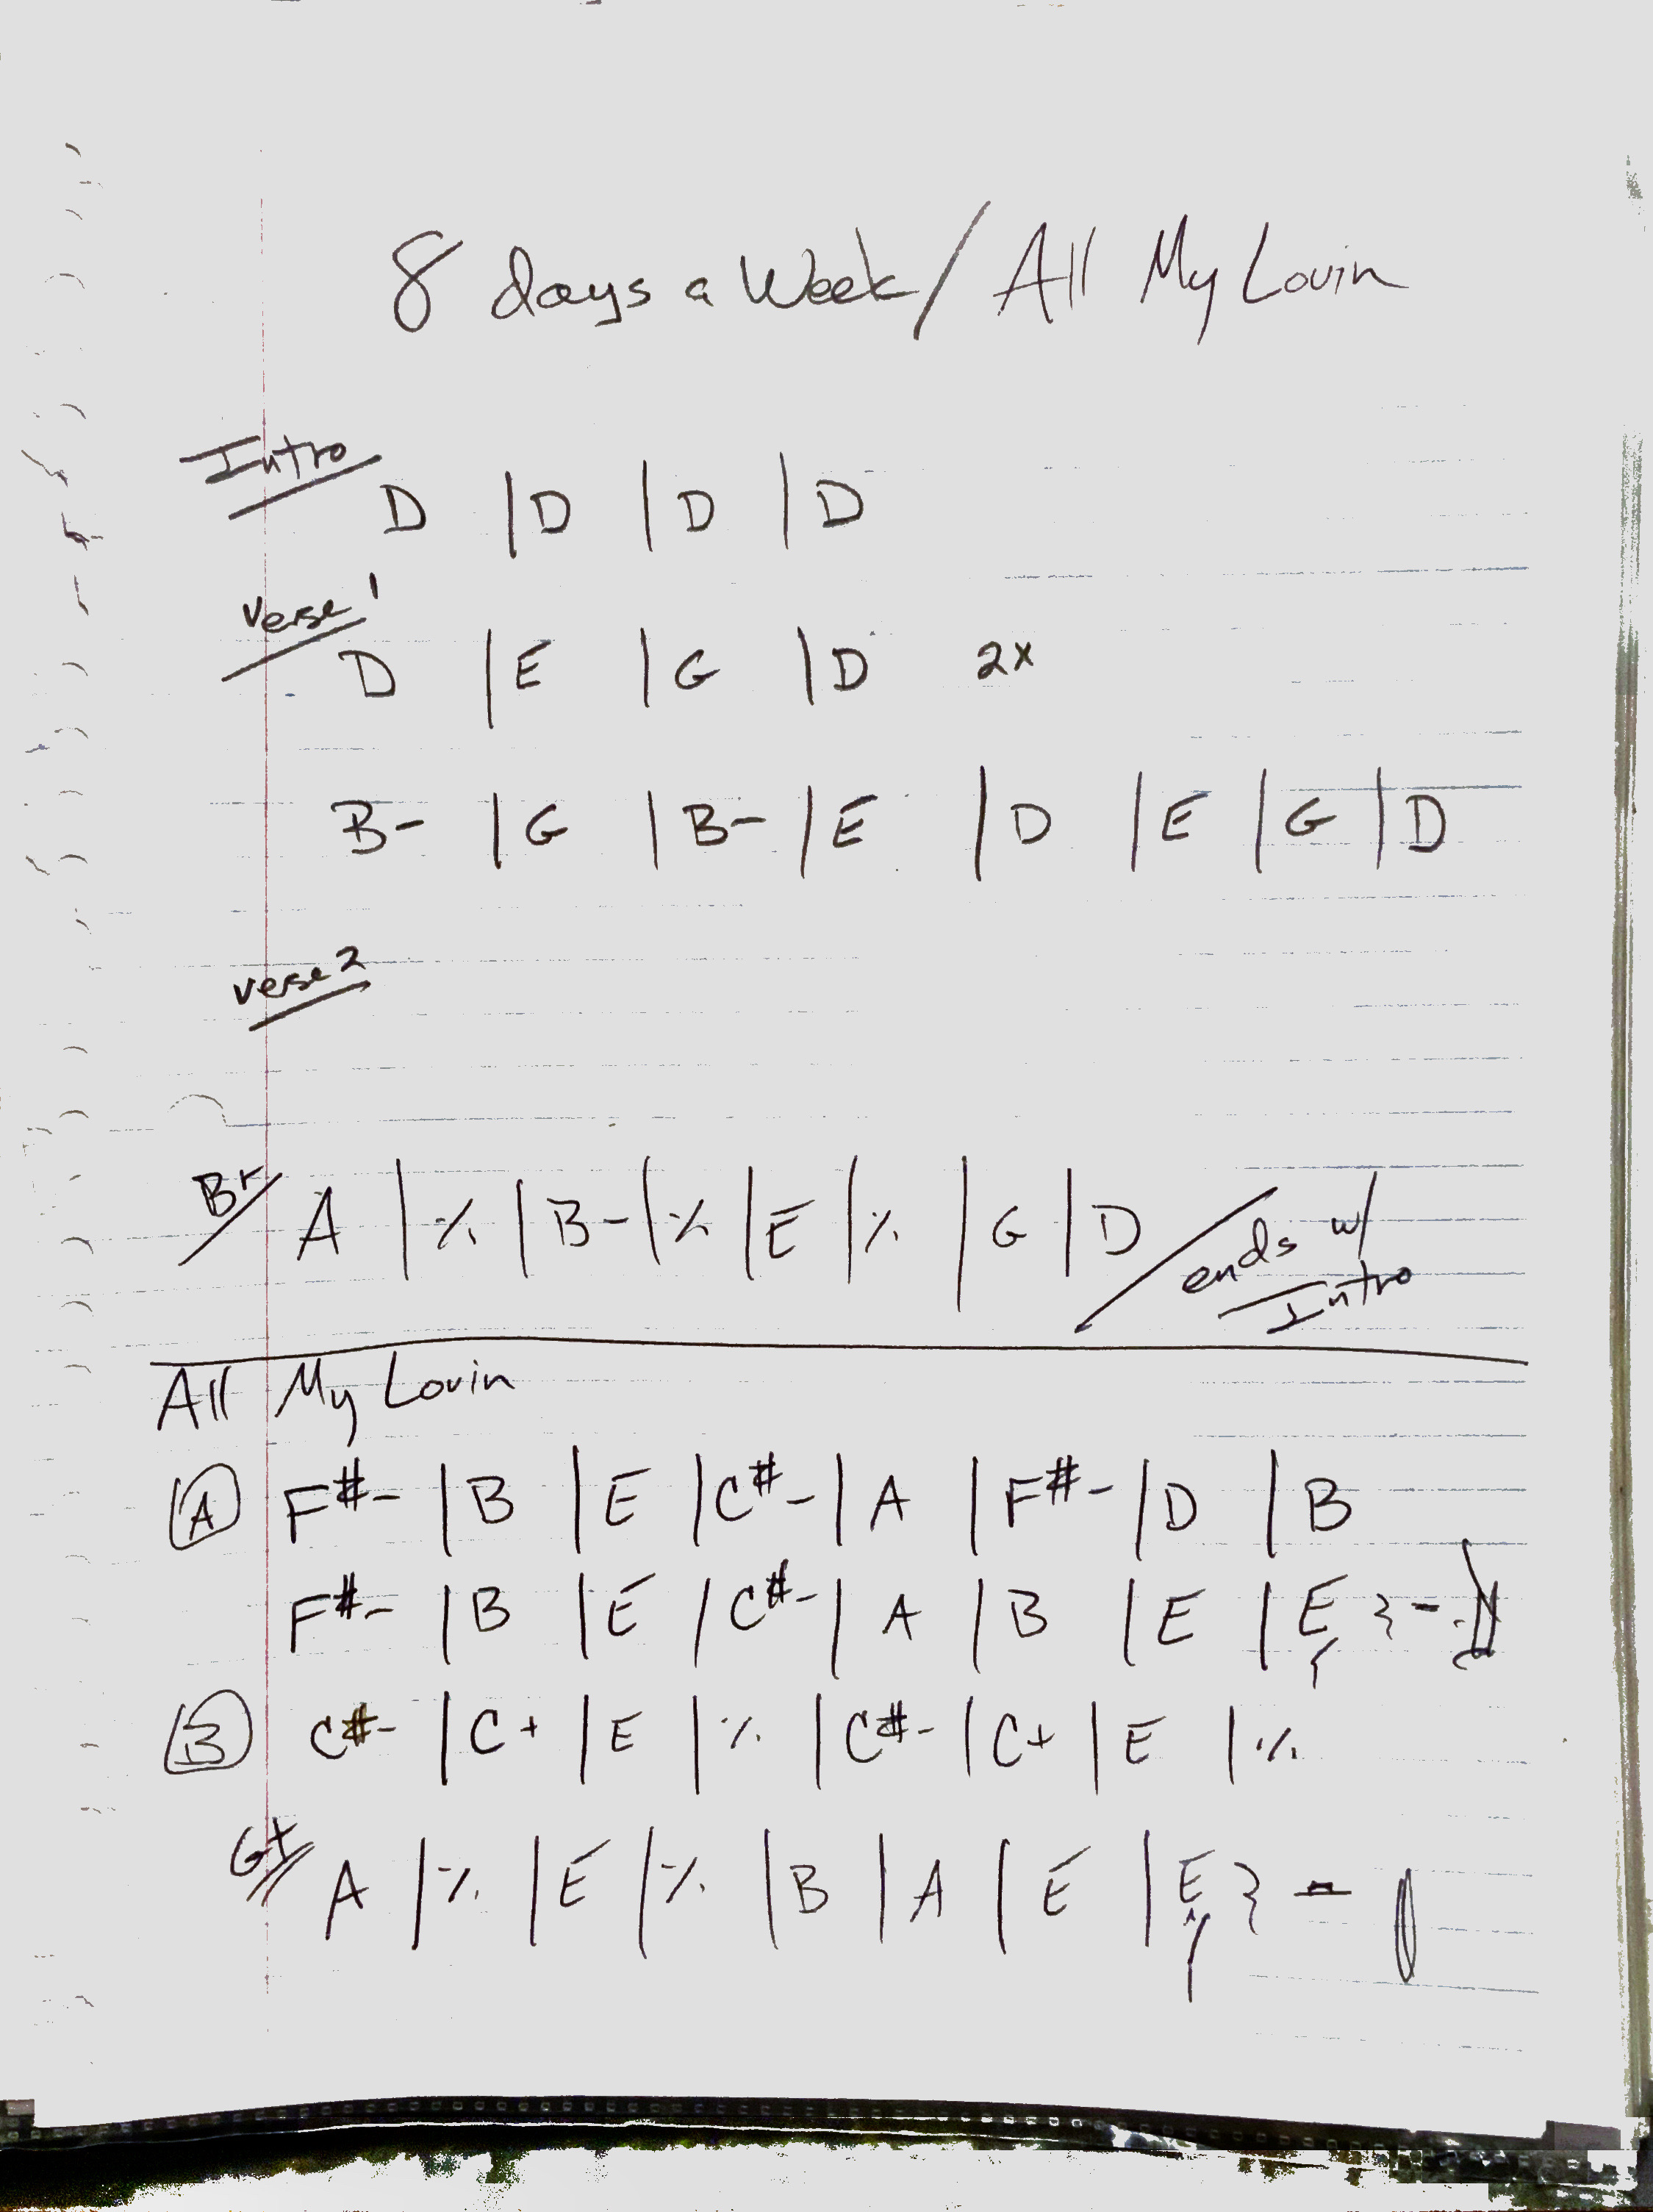 8 days a Week / All My Lovin
Intro
D | D | D | D
Verse 1
D | E | G | D 2x
B- | G | B- | E | D | E | G | D
verse 2
Br A | % | B- | % | E | % | G | D / ends w/
Intro
All My Lovin
A F#- | B | E | C#- | A | F#- | D | B
F#- | B | E | C#- | A | B | E | E
B C#- | C+ | E | % | C#- | C+ | E | %
A | % | E | % | B | A | E | E